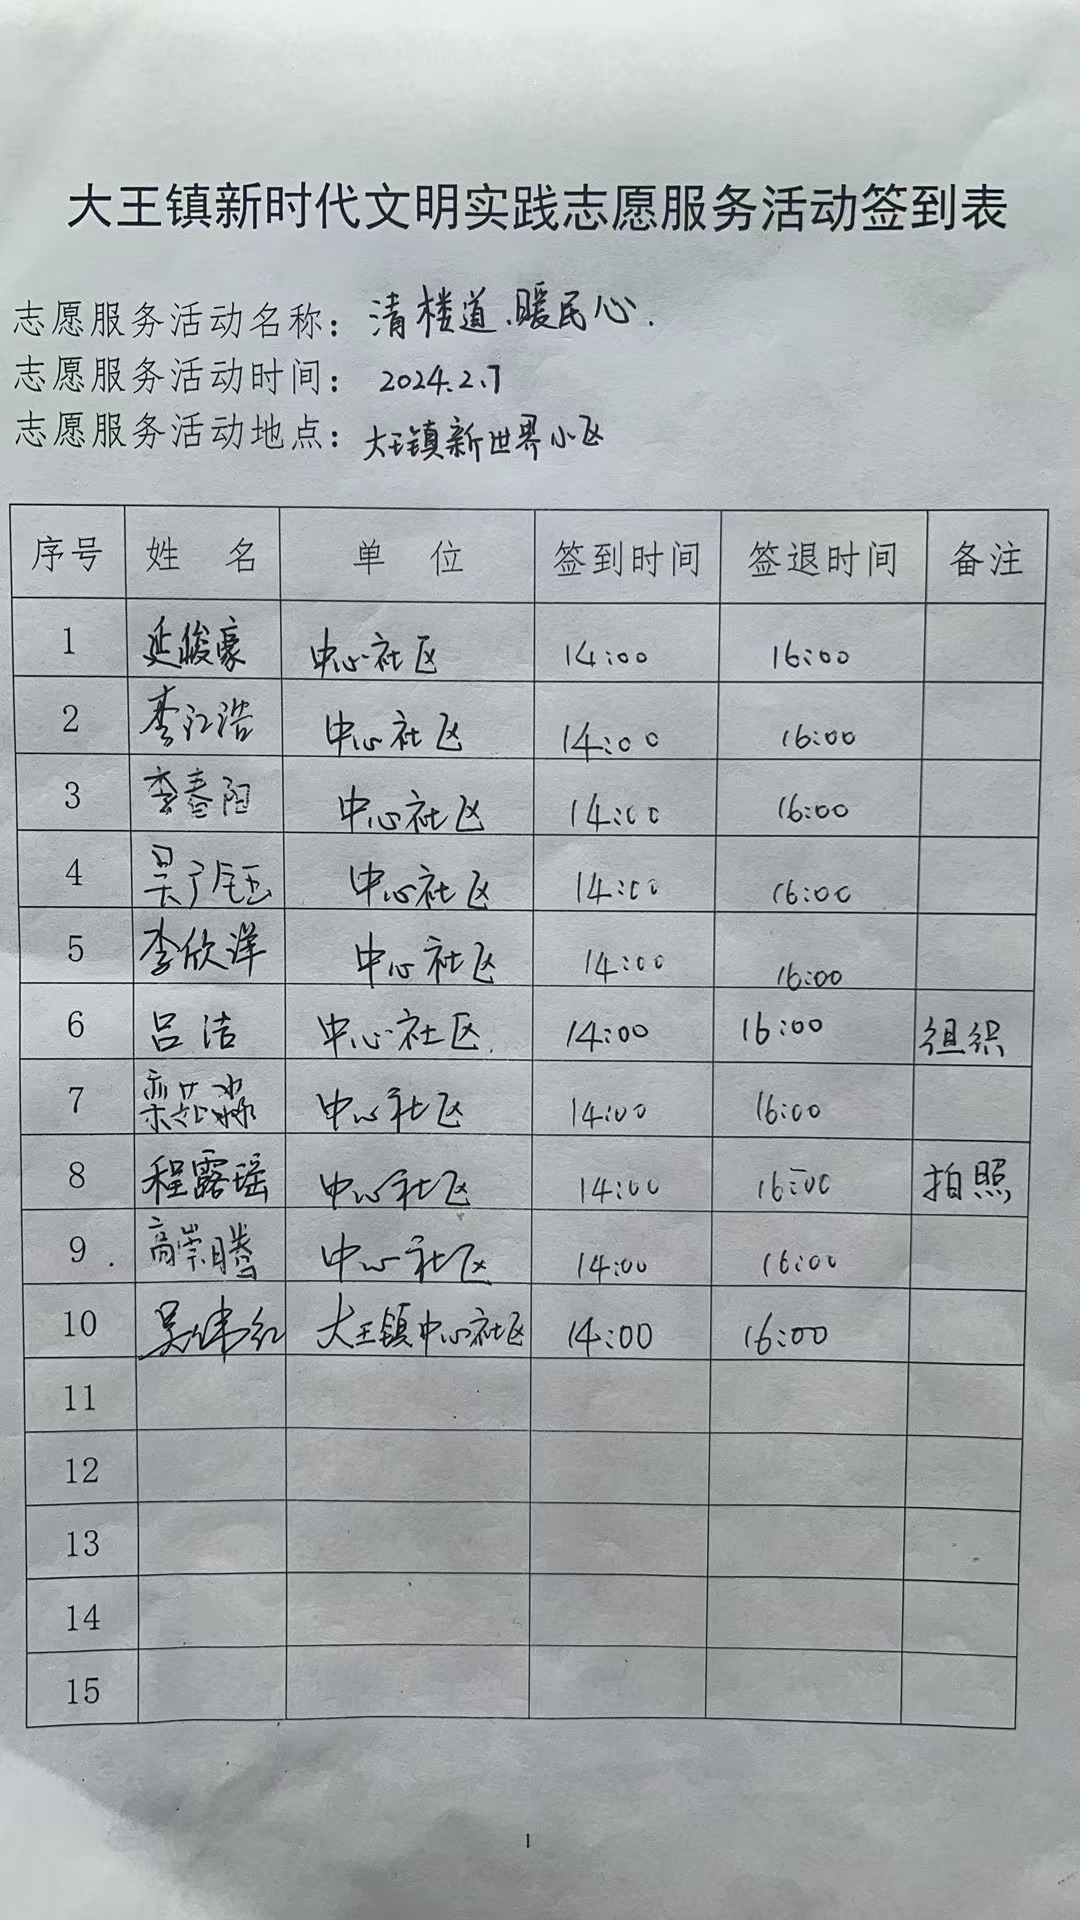 大王镇新时代文明实践志愿服务活动签到表
志愿服务活动名称：清楼道、暖民心.
志愿服务活动时间：2024.2.7
志愿服务活动地点：大王镇新世界小区
序号 姓 名 单 位 签到时间 签退时间 备注
1 延骏豪 中心社区 14:00 16:00
2 李江浩 中心社区 14:00 16:00
3 李春阳 中心社区 14:00 16:00
4 中心社区 14:00 16:00
5 李欣洋 中心社区 14:00 16:00
6 吕洁 中心社区 14:00 16:00 组织
7 中心社区 14:00 16:00
8 程露瑶 中心社区 14:00 16:00 拍照
9 高崇腾 中心社区 14:00 16:00
10 吴伟红 大王镇中心社区 14:00 16:00
11
12
13
14
15
1